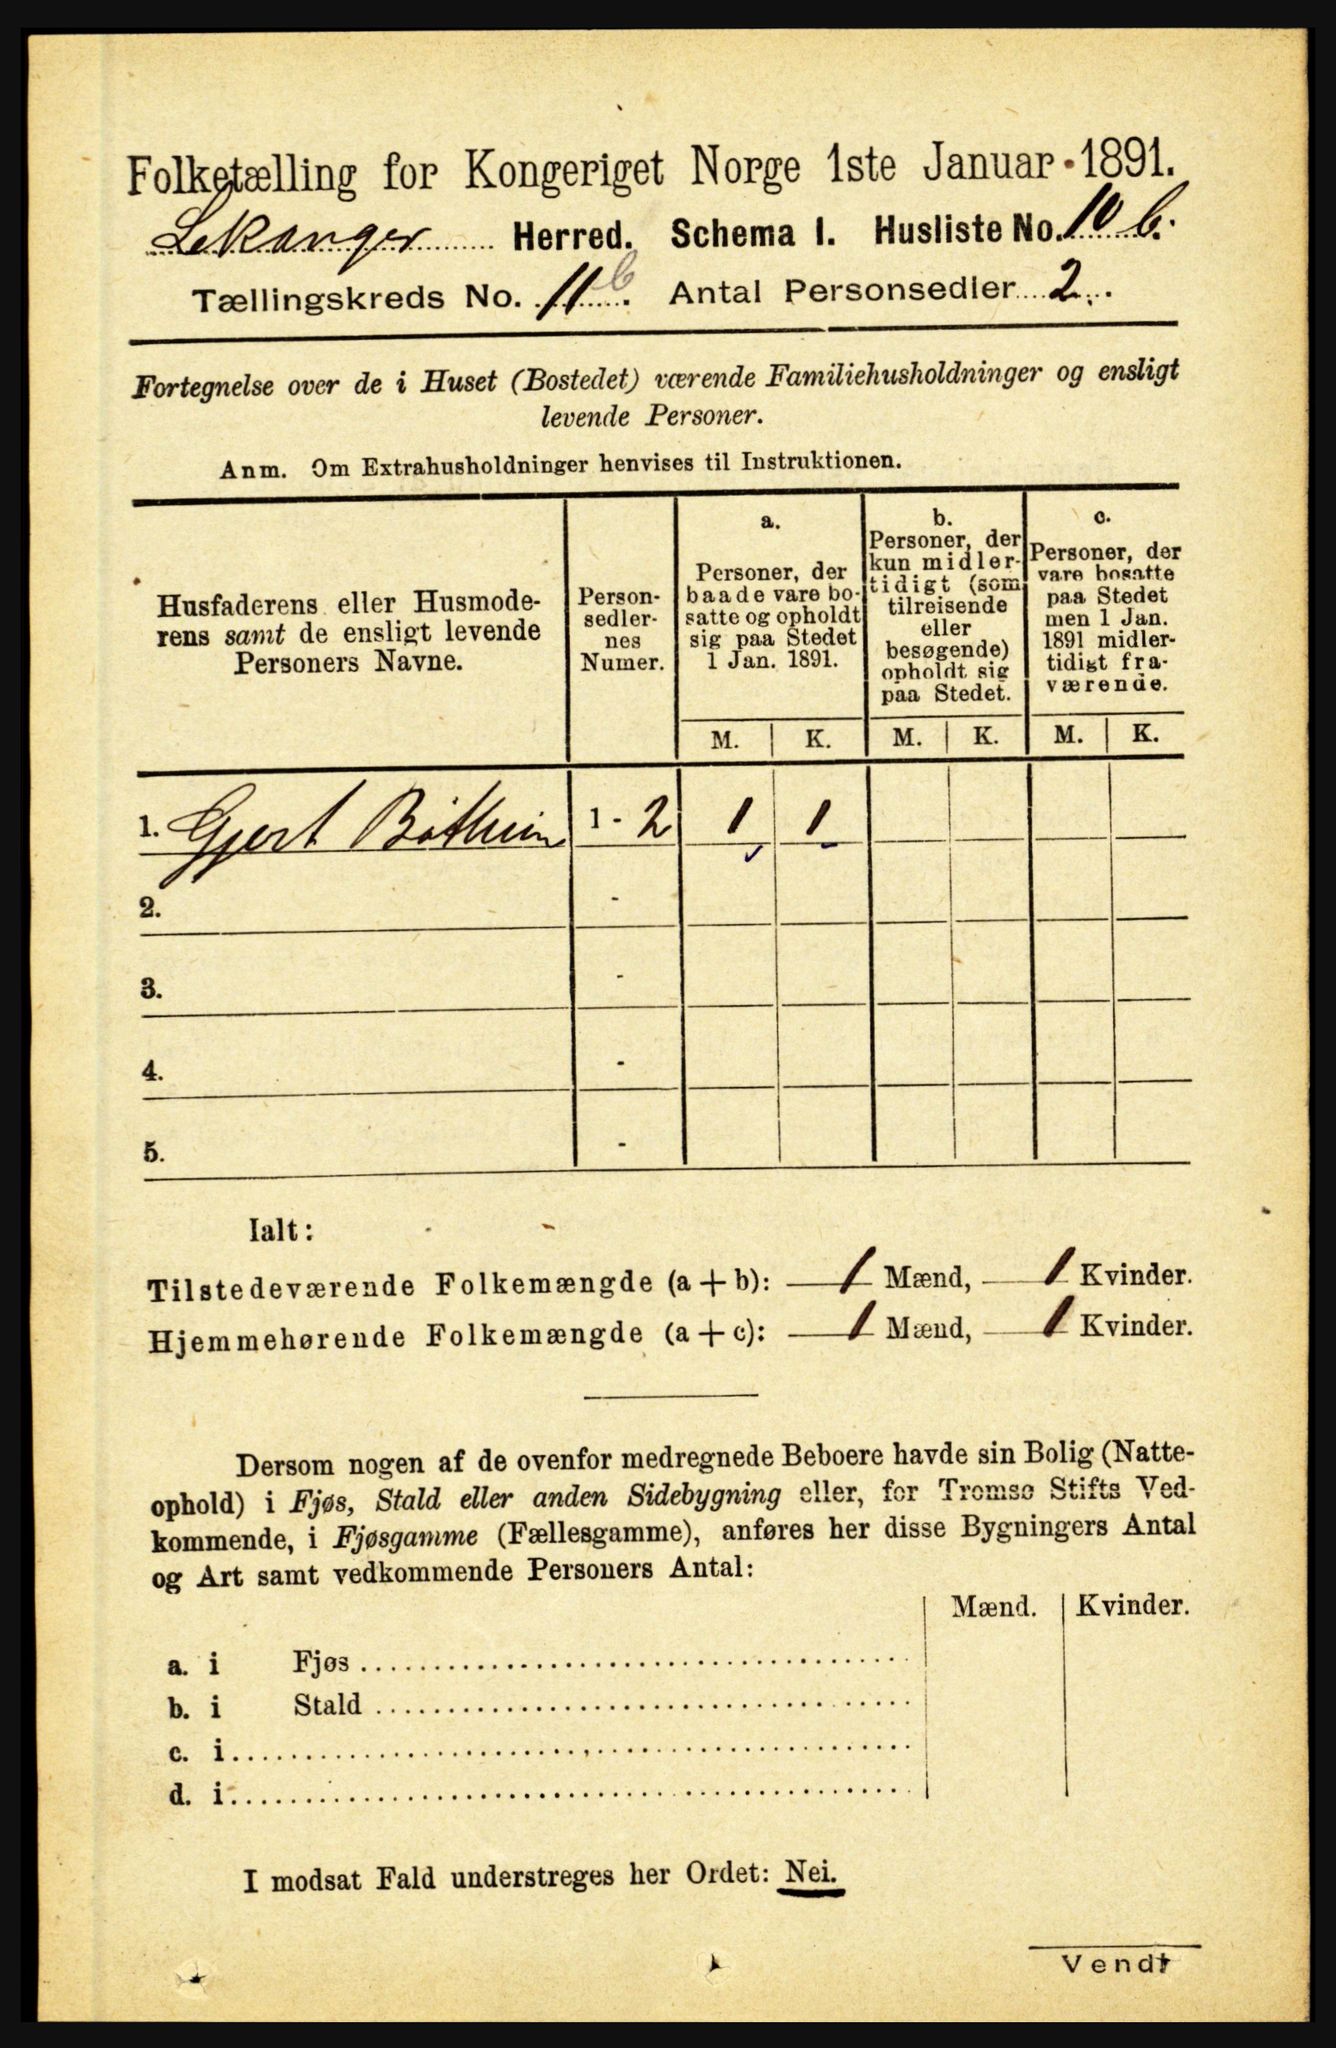 Folketælling for Kongeriget Norge 1ste Januar 1891.
Lekanger Herred. Schema I. Husliste No. 10 b.
Tællingskreds No. 11 b. Antal Personsedler 2.
Fortegnelse over de i Huset (Bostedet) værende Familiehusholdninger og ensligt
levende Personer.
Anm. Om Extrahusholdninger henvises til Instruktionen.
Husfaderens eller Husmode-
rens samt de ensligt levende
Personers Navne.
Person-
sedler-
nes
Numer.
a.
Personer, der
baade vare bo-
satte og opholdt
sig paa Stedet
1 Jan. 1891.
b.
Personer, der
kun midler-
tidigt (som
tilreisende
eller
besøgende)
opholdt sig
paa Stedet.
c.
Personer, der
vare bosatte
paa Stedet
men 1 Jan.
1891 midler-
tidigt fra-
værende.
M. K. M. K. M. K.
1. Gjert Bøthun 1 - 2 1 1
2. -
3. -
4. -
5. -
Ialt:
Tilstedeværende Folkemængde (a + b): 1 Mænd, 1 Kvinder.
Hjemmehørende Folkemængde (a + c): 1 Mænd, 1 Kvinder.
Dersom nogen af de ovenfor medregnede Beboere havde sin Bolig (Natte-
ophold) i Fjøs, Stald eller anden Sidebygning eller, for Tromsø Stifts Ved-
kommende, i Fjøsgamme (Fællesgamme), anføres her disse Bygningers Antal
og Art samt vedkommende Personers Antal:
Mænd. Kvinder.
a. i Fjøs
b. i Stald
c. i
d. i
I modsat Fald understreges her Ordet: Nei.
Vendt